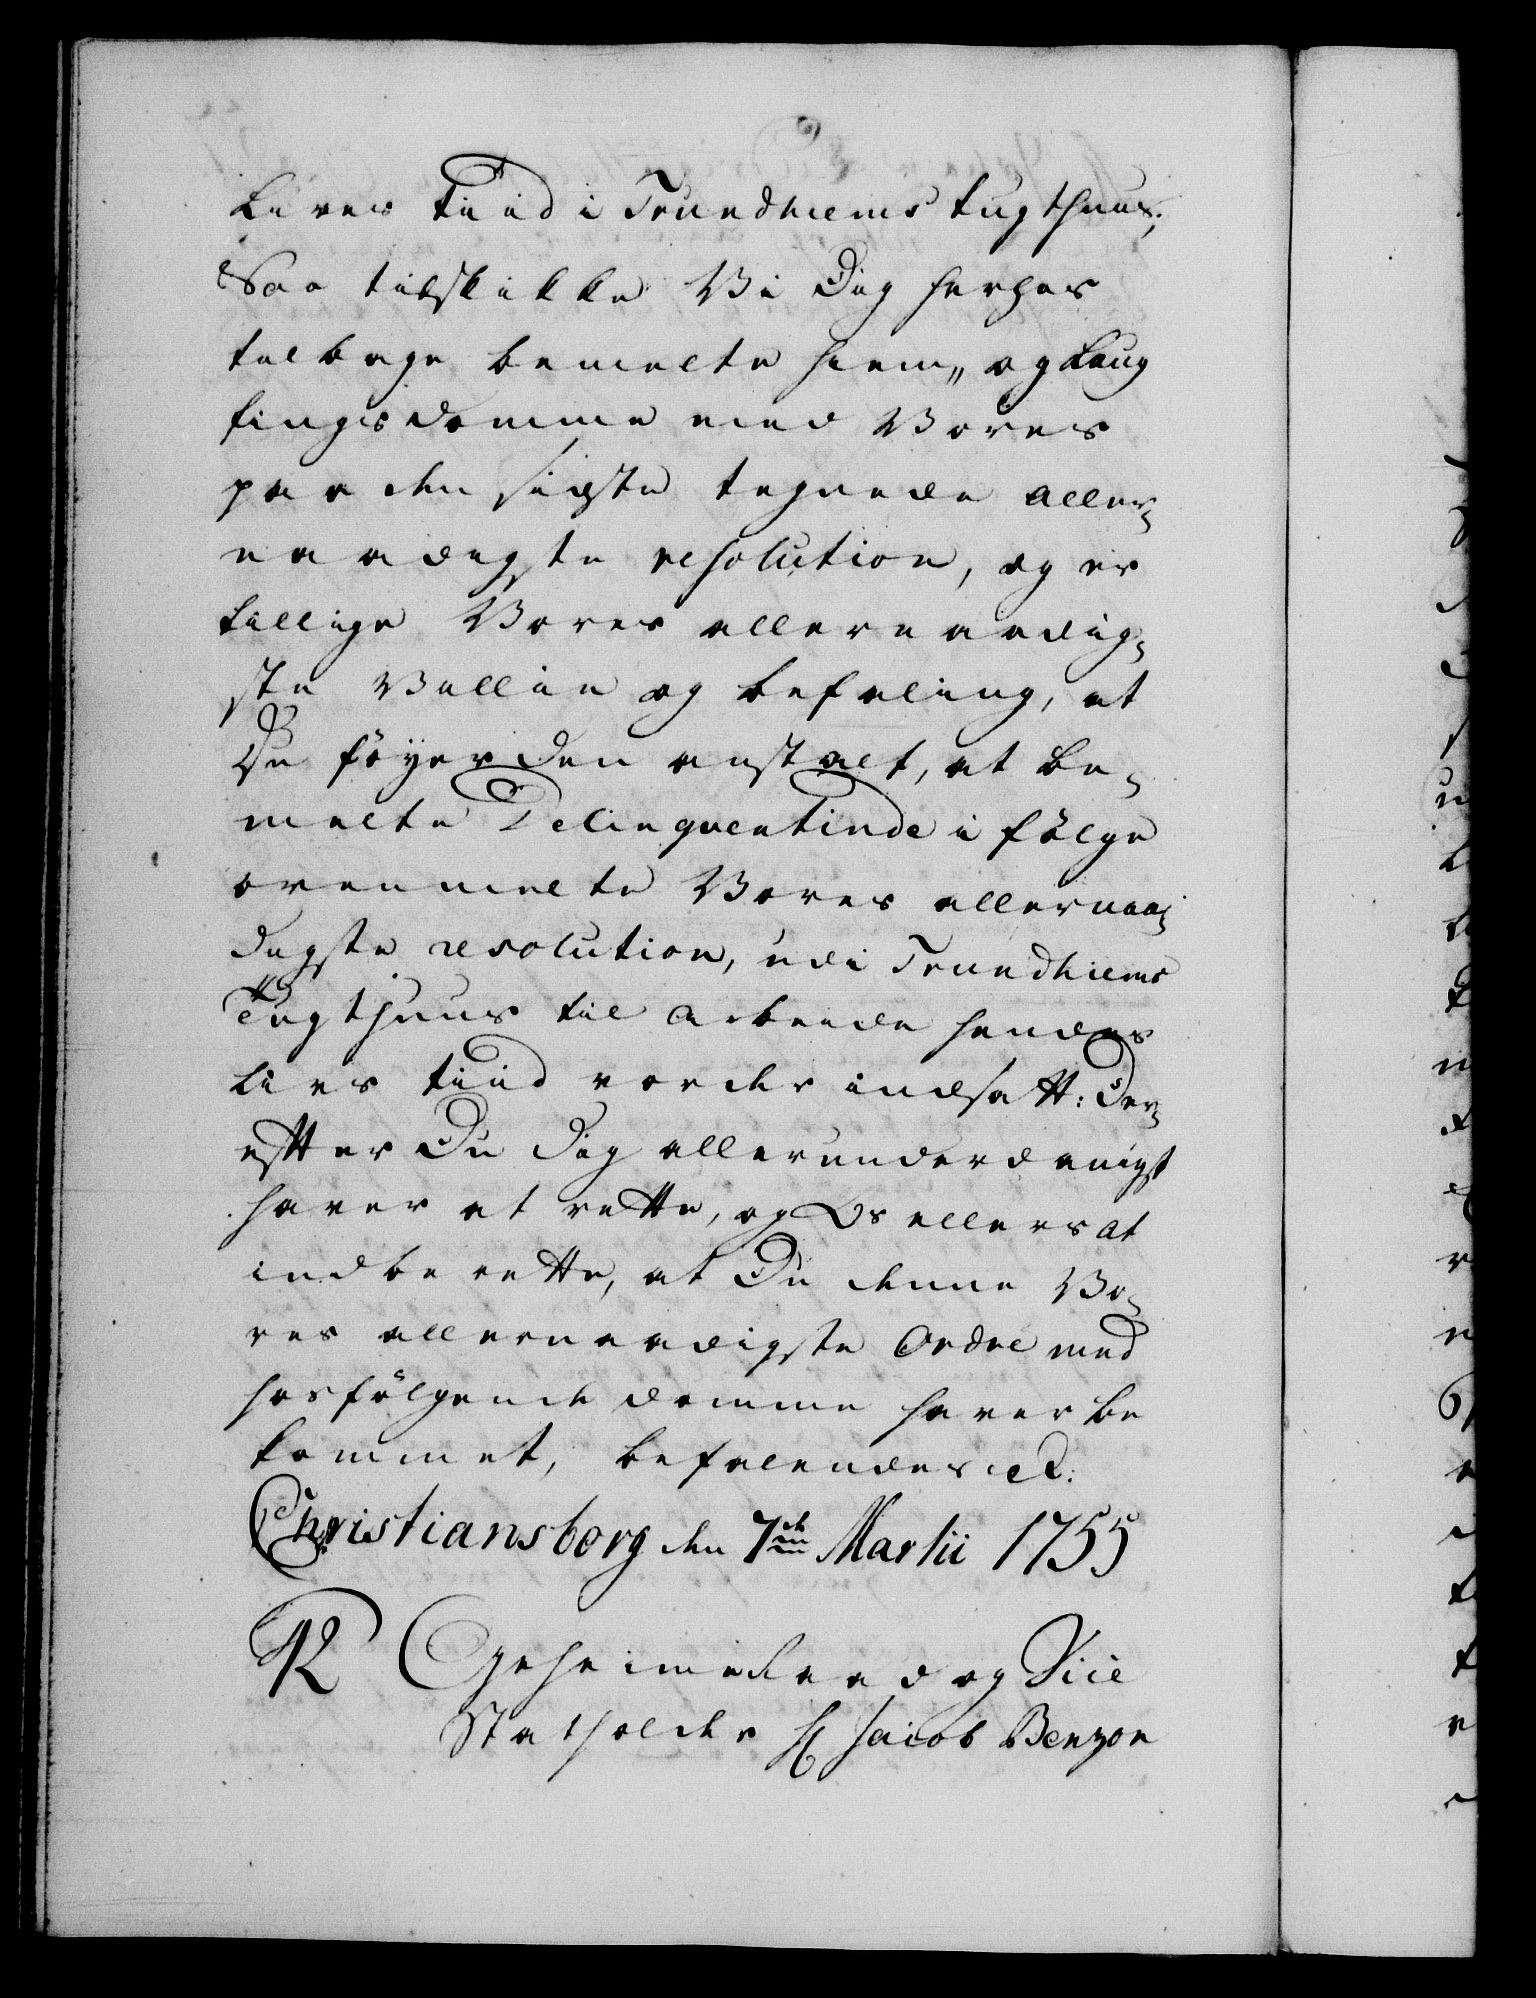 Lives Tiid i Trundhiems Tugthuus;
Saa tilskikke Vi Dig herhos
tilbage bemelte Hiem„ og Laug
tings Domme med Vores
paa den sidste tegnede aller¬
naadigste resolution, og er
tillige Vores allernaadig¬
ste Villie og befaling, at
Du föyer den anstalt, at be¬
melte Delinqventinde i fölge
ovenmelte Vores allernaa¬
digste resolution, udi Trundhiems
Tugthuus til Arbeide hendes
Livs Tiid vorder indsatt: Der¬
efter Du Dig allerunderdanigst
haver at rette, og Os ellers at
indberette, at Du denne Vo¬
res allernaadigste Ordre med
hosfölgende Domme haver be
kommet, befalendes etc:
Christiansborg den 7de Martii 1755
Geheimeraad og Vice
Statholder Hr Jacob Benzon